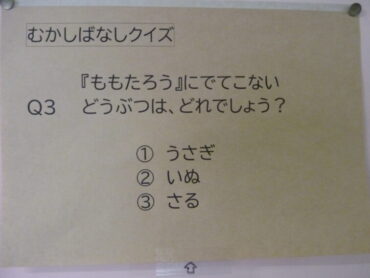 むかしばなしクイズ
『ももたろう』にでてこない
Q3 どうぶつは、どれでしょう？
① うさぎ
② いぬ
③ さる
⇧